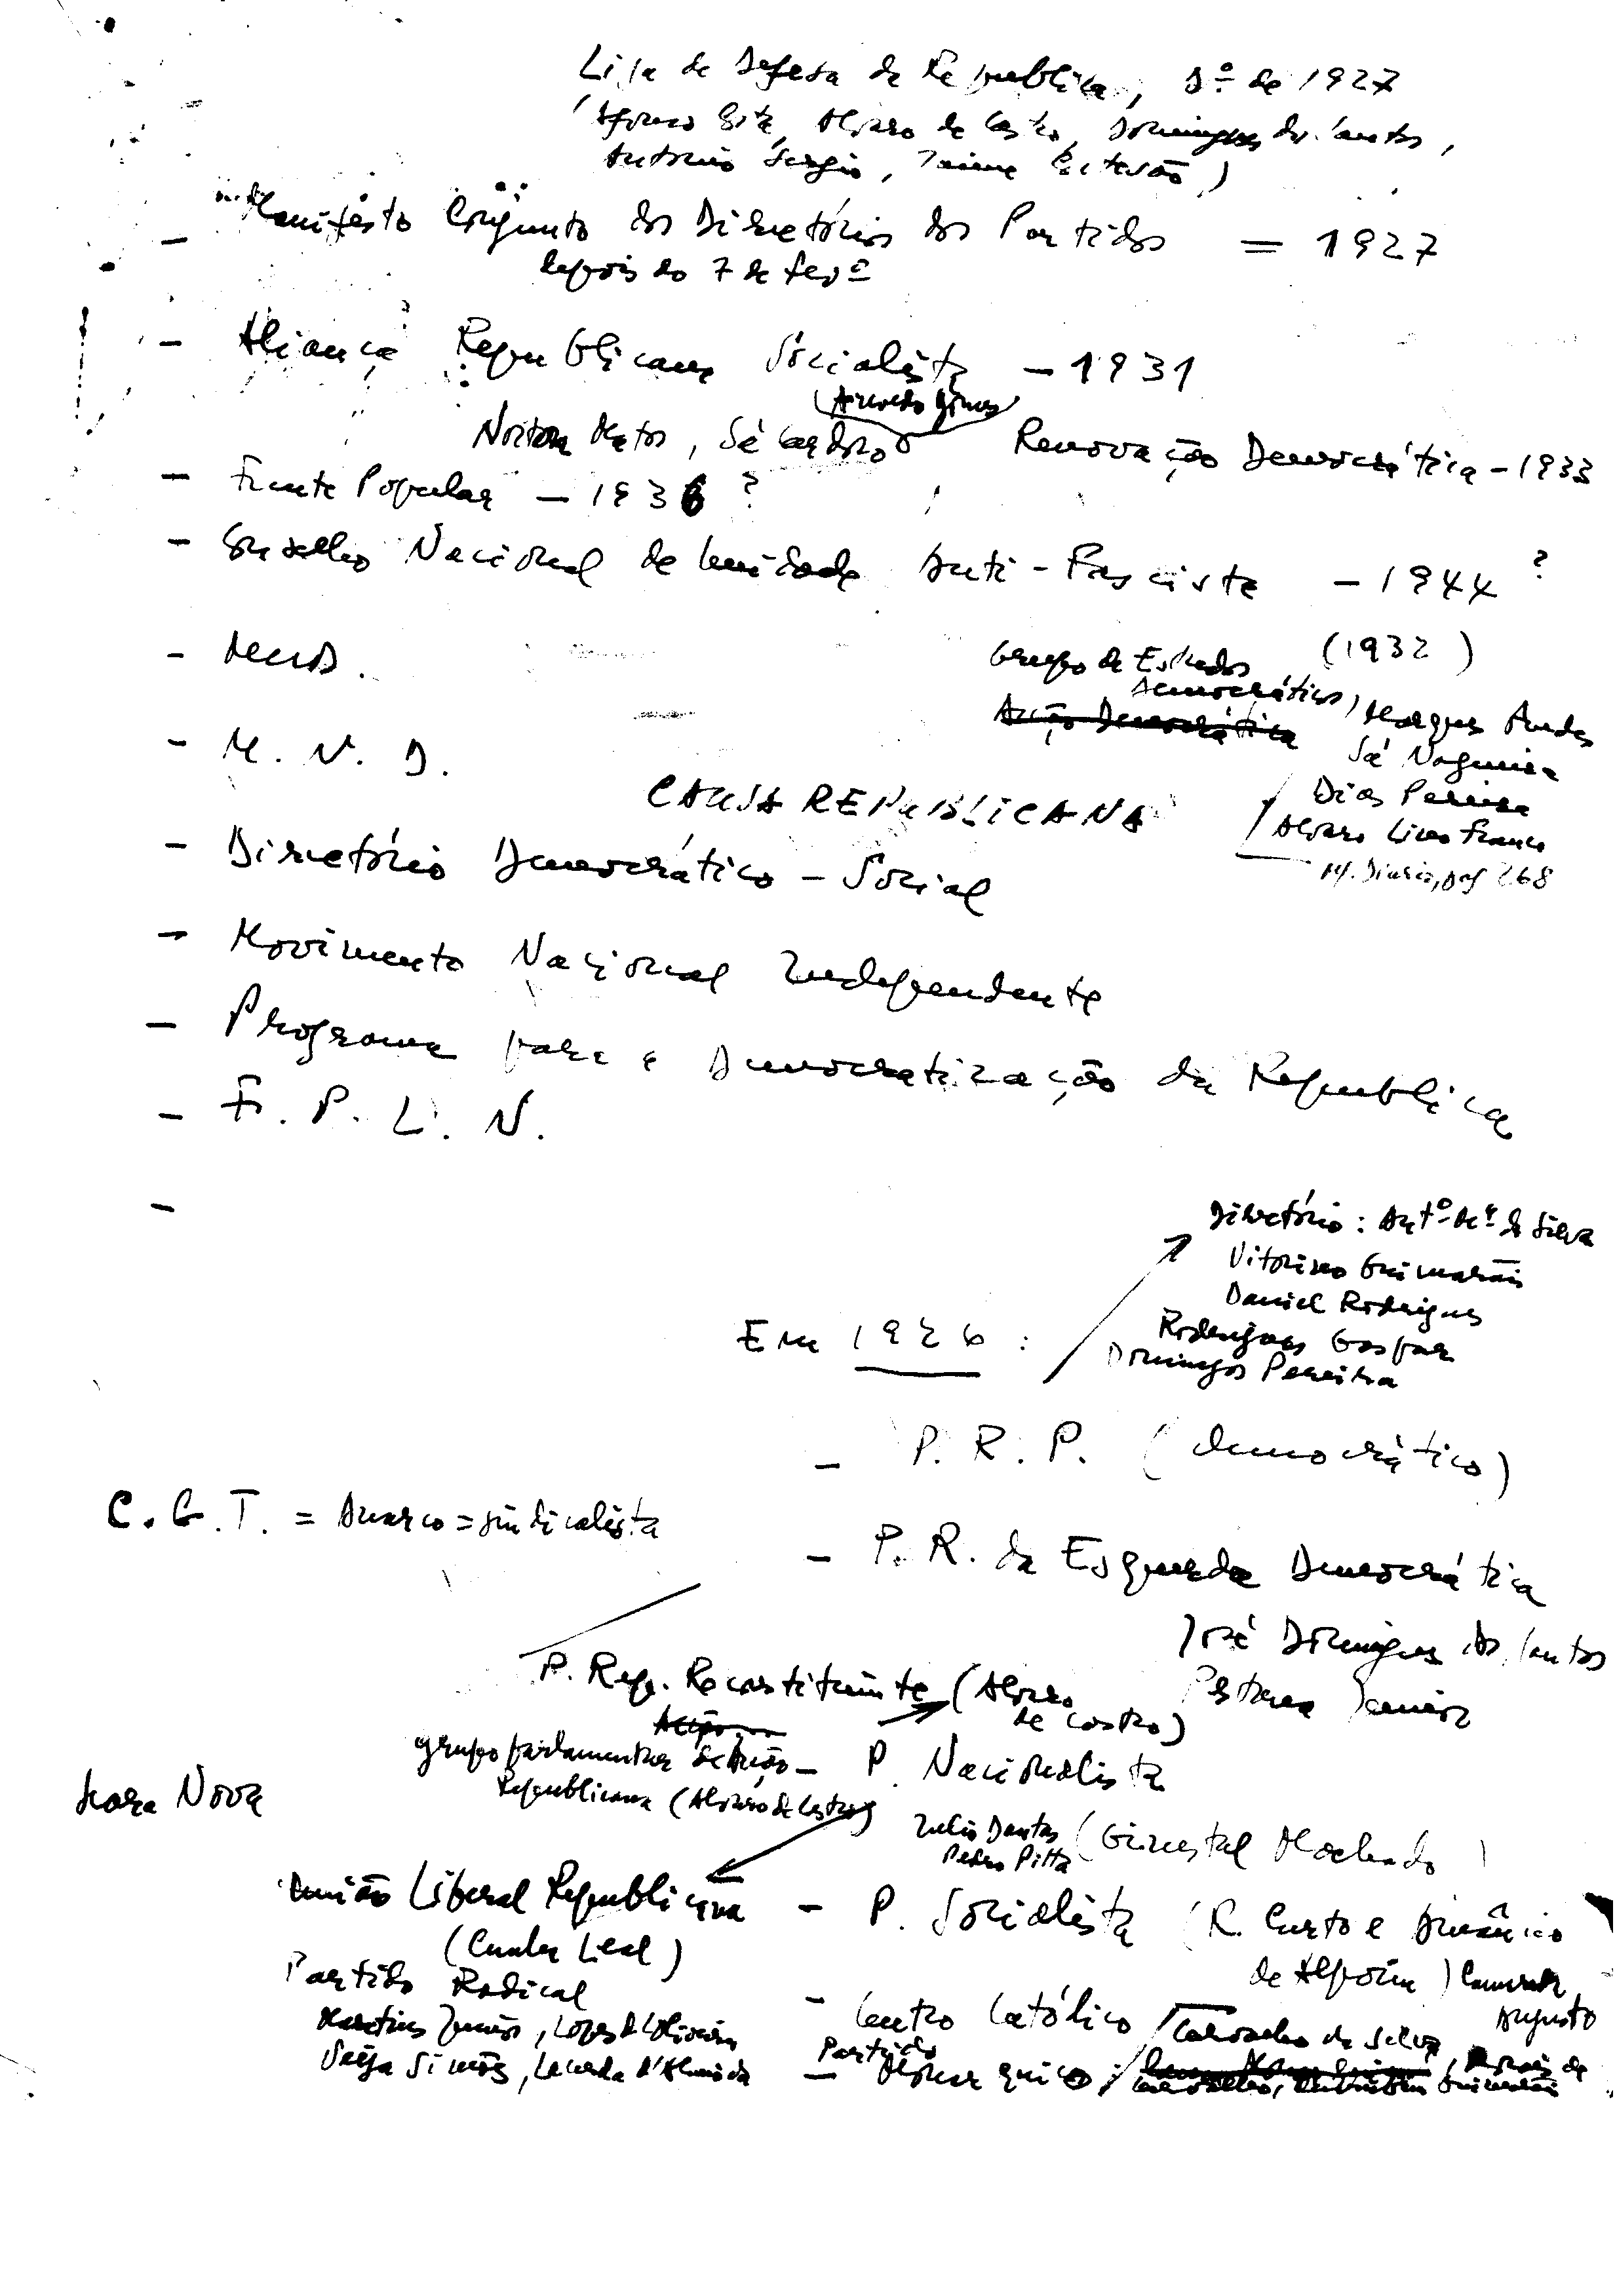 Liga de Defesa da Republica, Dº de 1927
(Afonso Costa, Alvaro de Castro, Domingues dos Santos,
António Sergio, Jaime Cortesão)
- Manifesto Conjunto dos Diretórios dos Partidos = 1927
depois do 7 de Fevº
- Aliança Republicana Socialista - 1931
(Azevedo Gomes)
Norton Matos, Sá Cardoso
Renovação Democrática - 1933
- Frente Popular - 1936 ?
- Conselho Nacional de Unidade Anti-Fascista - 1944 ?
- MUD.
Grupo de Estudos (1932)
Democráticos,
Acção Democrática
Marques Guedes
- M. N. D.
Sá Nogueira
Dias Pereira
CAUSA REPUBLICANA
Alvaro Lino Franco
- Diretório Democrático-Social
Diario, pag 268
- Movimento Nacional Independente
- Programa para a Democratização da Republica
- F. P. L. N.
-
Diretório: Antº Mª da Silva
Vitorino Guimarães
Daniel Rodrigues
Em 1926 :
Rodrigues Gaspar
Domingos Pereira
- P. R. P. (democrático)
C. G. T. = Anarco=sindicalista
- P. R. da Esquerda Democrática
José Domingues dos Santos
Pestana Junior
P. Rep. Reconstituinte (Alvaro
de Castro)
Acção
grupo parlamentar de Acção
Republicana (Alvaro de Castro)
- P. Nacionalista
Seara Nova
Julio Dantas
Pedro Pitta
(Ginestal Machado)
União Liberal Republicana
(Cunha Leal)
- P. Socialista (R. Curto e Amâncio
de Alpoim) Ramada
Partido Radical
Martins Junior, Lopes d'Oliveira
Veiga Simões, Lacerda d'Almeida
- Centro Católico
Augusto
Carvalho da Silva,
- Partido Monarquico :